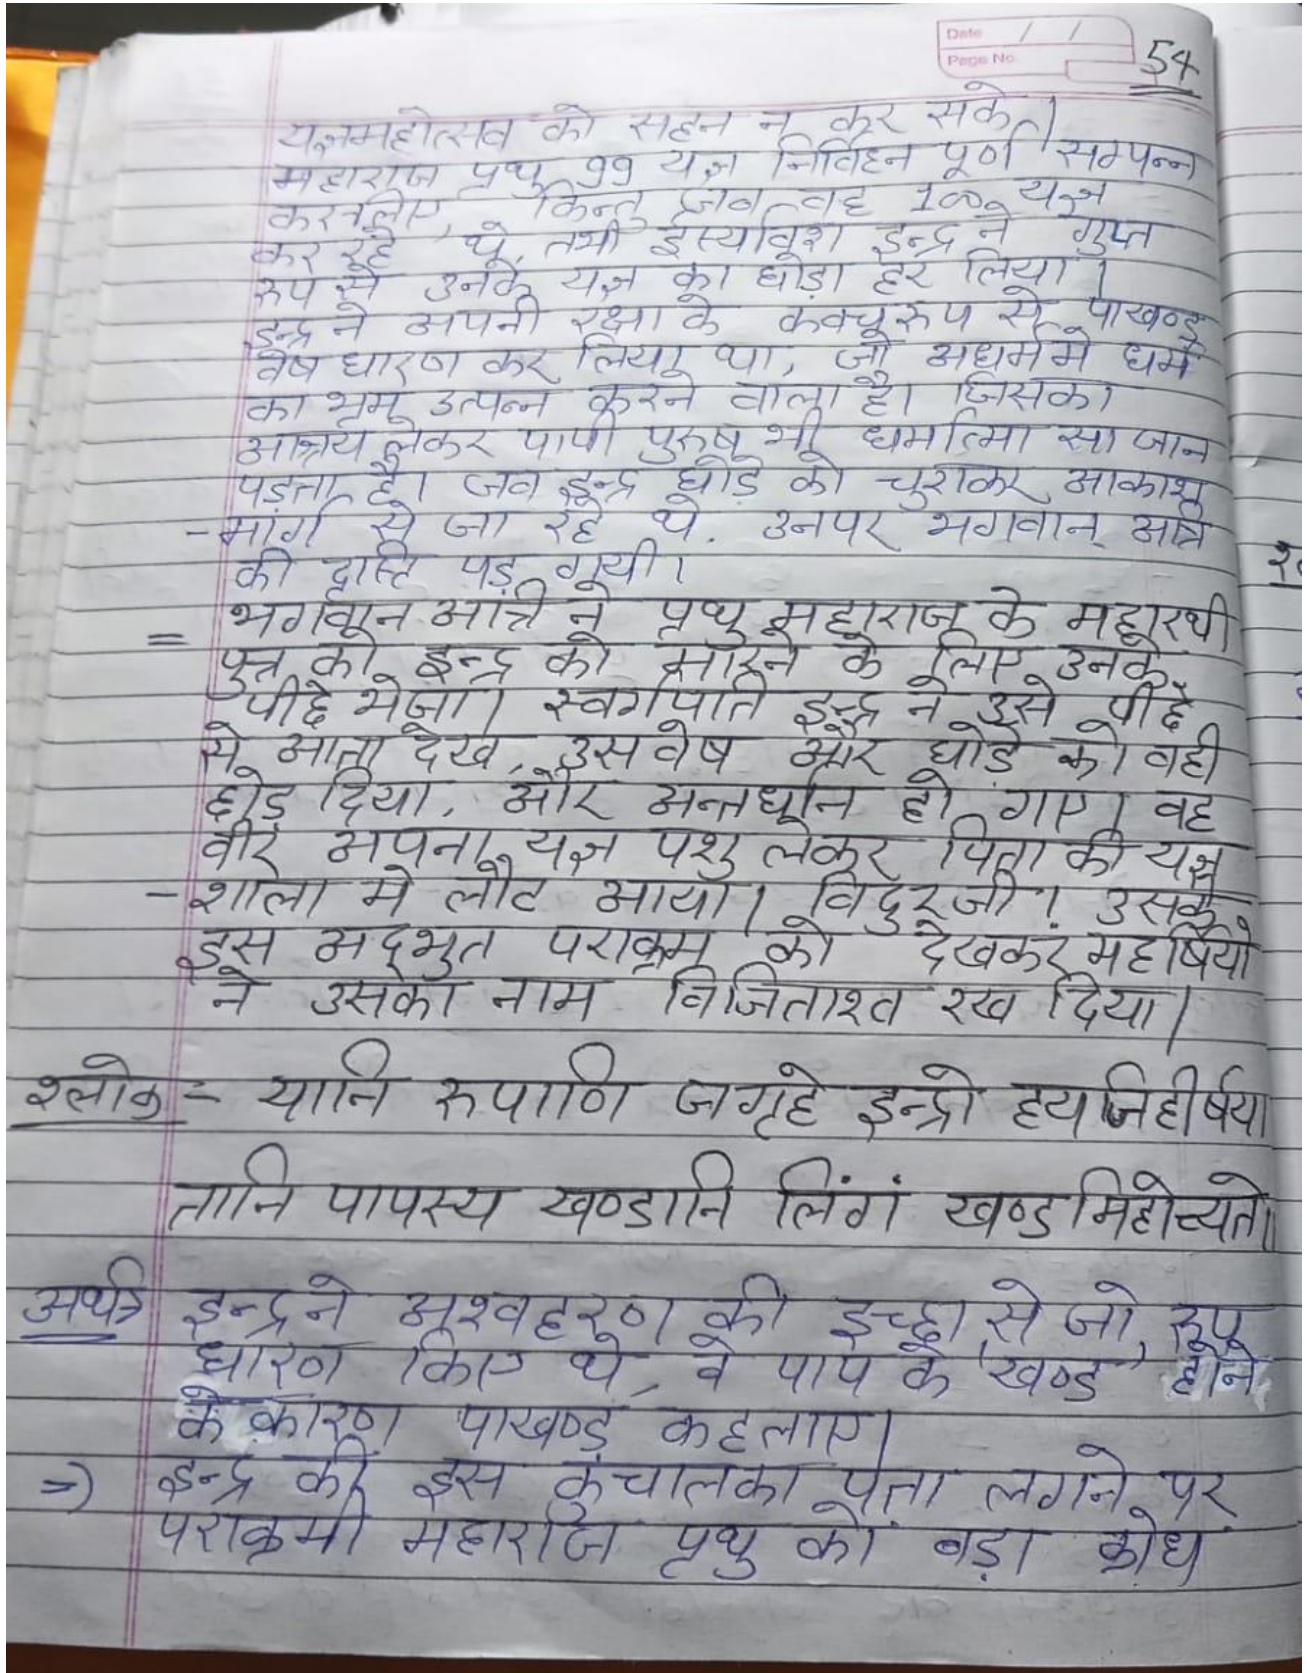 Date / /
Page No.
54
यज्ञमहोत्सव को सहन न कर सके।
महाराज पृथु 99 यज्ञ निर्विहन पूर्ण सम्पन्न
करलिए, किन्तु जब वह 100 यज्ञ
कर रहे थे, तभी ईर्ष्यावश इन्द्र ने गुप्त
रुप से उनके यज्ञ का घोड़ा हर लिया।
इन्द्र ने अपनी रक्षा के कवच रुप से पाखण्ड
वेष धारण कर लिया था, जो अधर्म मे धर्म
का भ्रम उत्पन्न करने वाला है। जिसका
आश्रय लेकर पापी पुरुष भी धर्मात्मा सा जान
पड़ता है। जब इन्द्र घोड़े को चुराकर आकाश
- मार्ग से जा रहे थे. उनपर भगवान् अत्रि
की दृष्टि पड़ गयी।
= भगवान अत्रि ने पृथु महाराज के महारथी
पुत्र को इन्द्र को मारने के लिए उनके
पीछे भेजा। स्वर्गपति इन्द्र ने उसे पीछे
से आता देख, उस वेष और घोड़े को वही
छोड़ दिया, और अन्तर्धान हो गए। वह
वीर अपना यज्ञ पशु लेकर पिता की यज्ञ
- शाला मे लौट आया। विदुरजी! उसके
इस अद्भुत पराक्रम को देखकर महर्षियो
ने उसका नाम विजिताश्व रख दिया।
श्लोक - यानि रुपाणि जगृहे इन्द्रो हयजिहीर्षया
तानि पापस्य खण्डानि लिंगं खण्डमिहोच्यते॥
अर्थ इन्द्र ने अश्वहरण की इच्छा से जो रूप
धारण किए थे, वे पाप के 'खण्ड' होने
के कारण पाखण्ड कहलाए।
=> इन्द्र की इस कुचालका पता लगने पर
पराक्रमी महाराज पृथु को बड़ा क्रोध